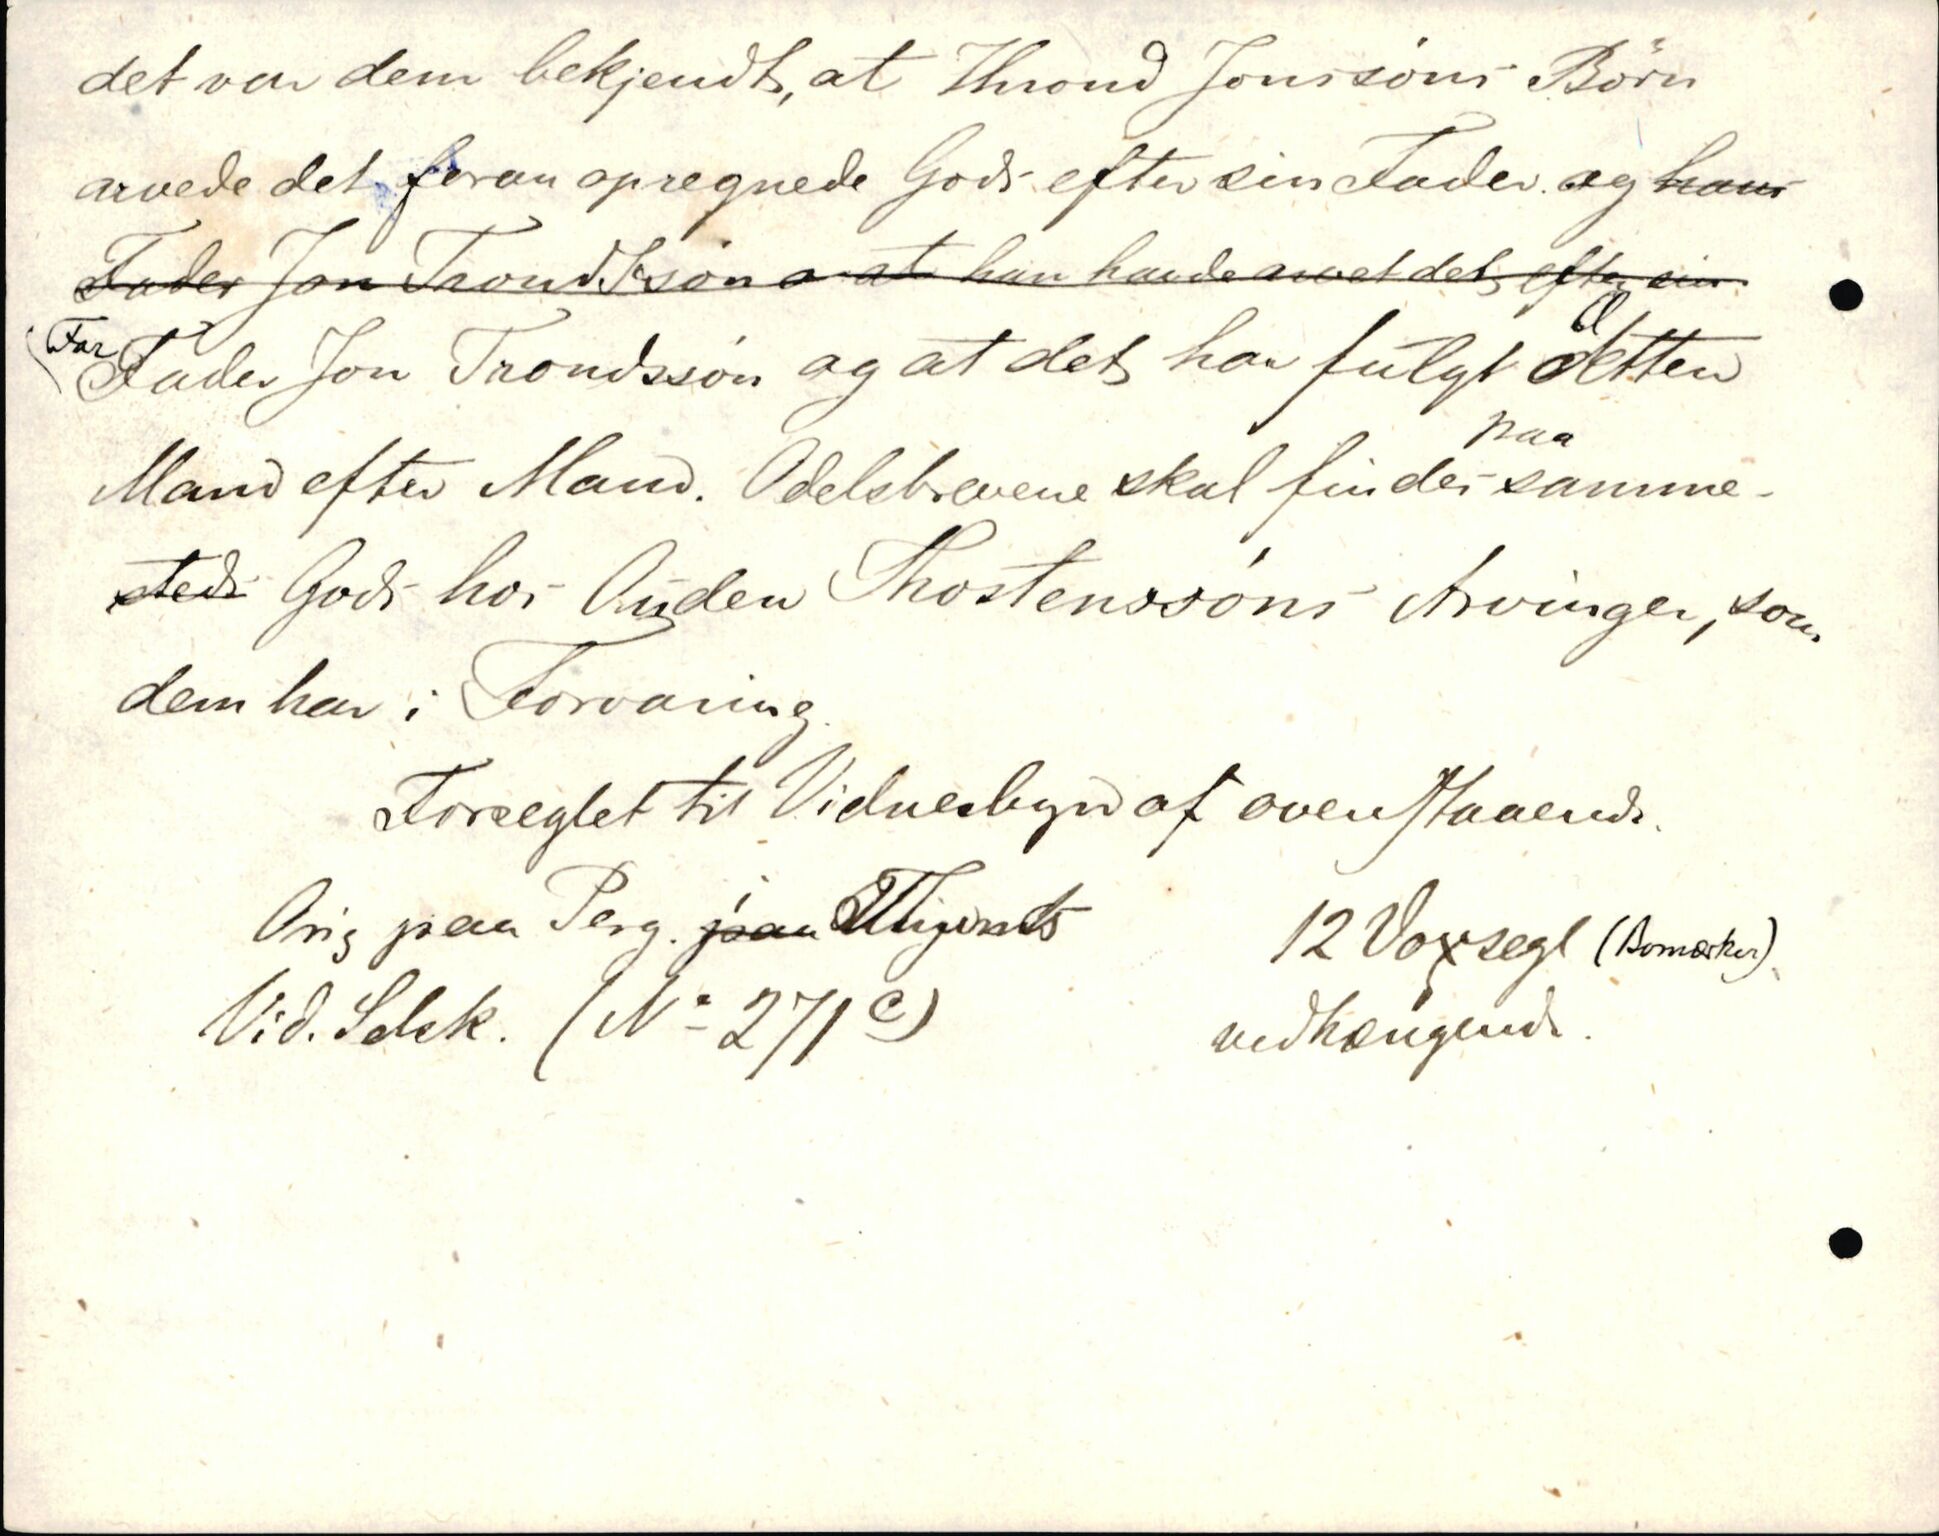 det var dem bekjendt, at Thrond Jonssöns Börn
arvede det foran opregnede Gods efter sin Fader. og hans
Fader Jon Trondssön o at han havde arvet det efter sin
(Far
Fader Jon Trondssön og at det har fulgt Ætten
paa
Mand efter Mand. Odelsbrevene skal findes samme-
steds Gods hos Auden Thostenssöns Arvinger, som
dem har i Forvaring.
Forseglet til Vidnesbyrd af ovenstaaende.
Orig paa Perg. paa i
12 Voxsegl (Bomærker)
Vid. Selsk. (No 271 c)
vedhængende.